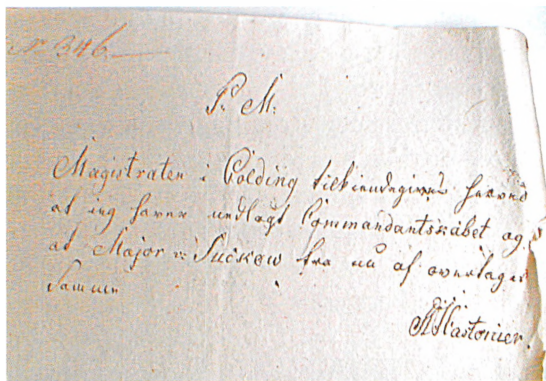 N 346
P. M.
Magistraten i Colding tilkiendegives herved
at jeg haver nedlagt Commandantskabet og
at Major v: Suckow fra nu af overtager
Samme